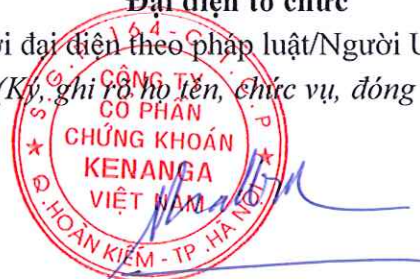 Đại diện tổ chức
i đại diện theo pháp luật/Người U
(Ký, ghi rõ họ tên, chức vụ, đóng
CÔNG TY
CỔ PHẦN
CHỨNG KHOÁN
KENANGA
VIỆT NAM
Q. HOÀN KIẾM - TP. HÀ NỘI